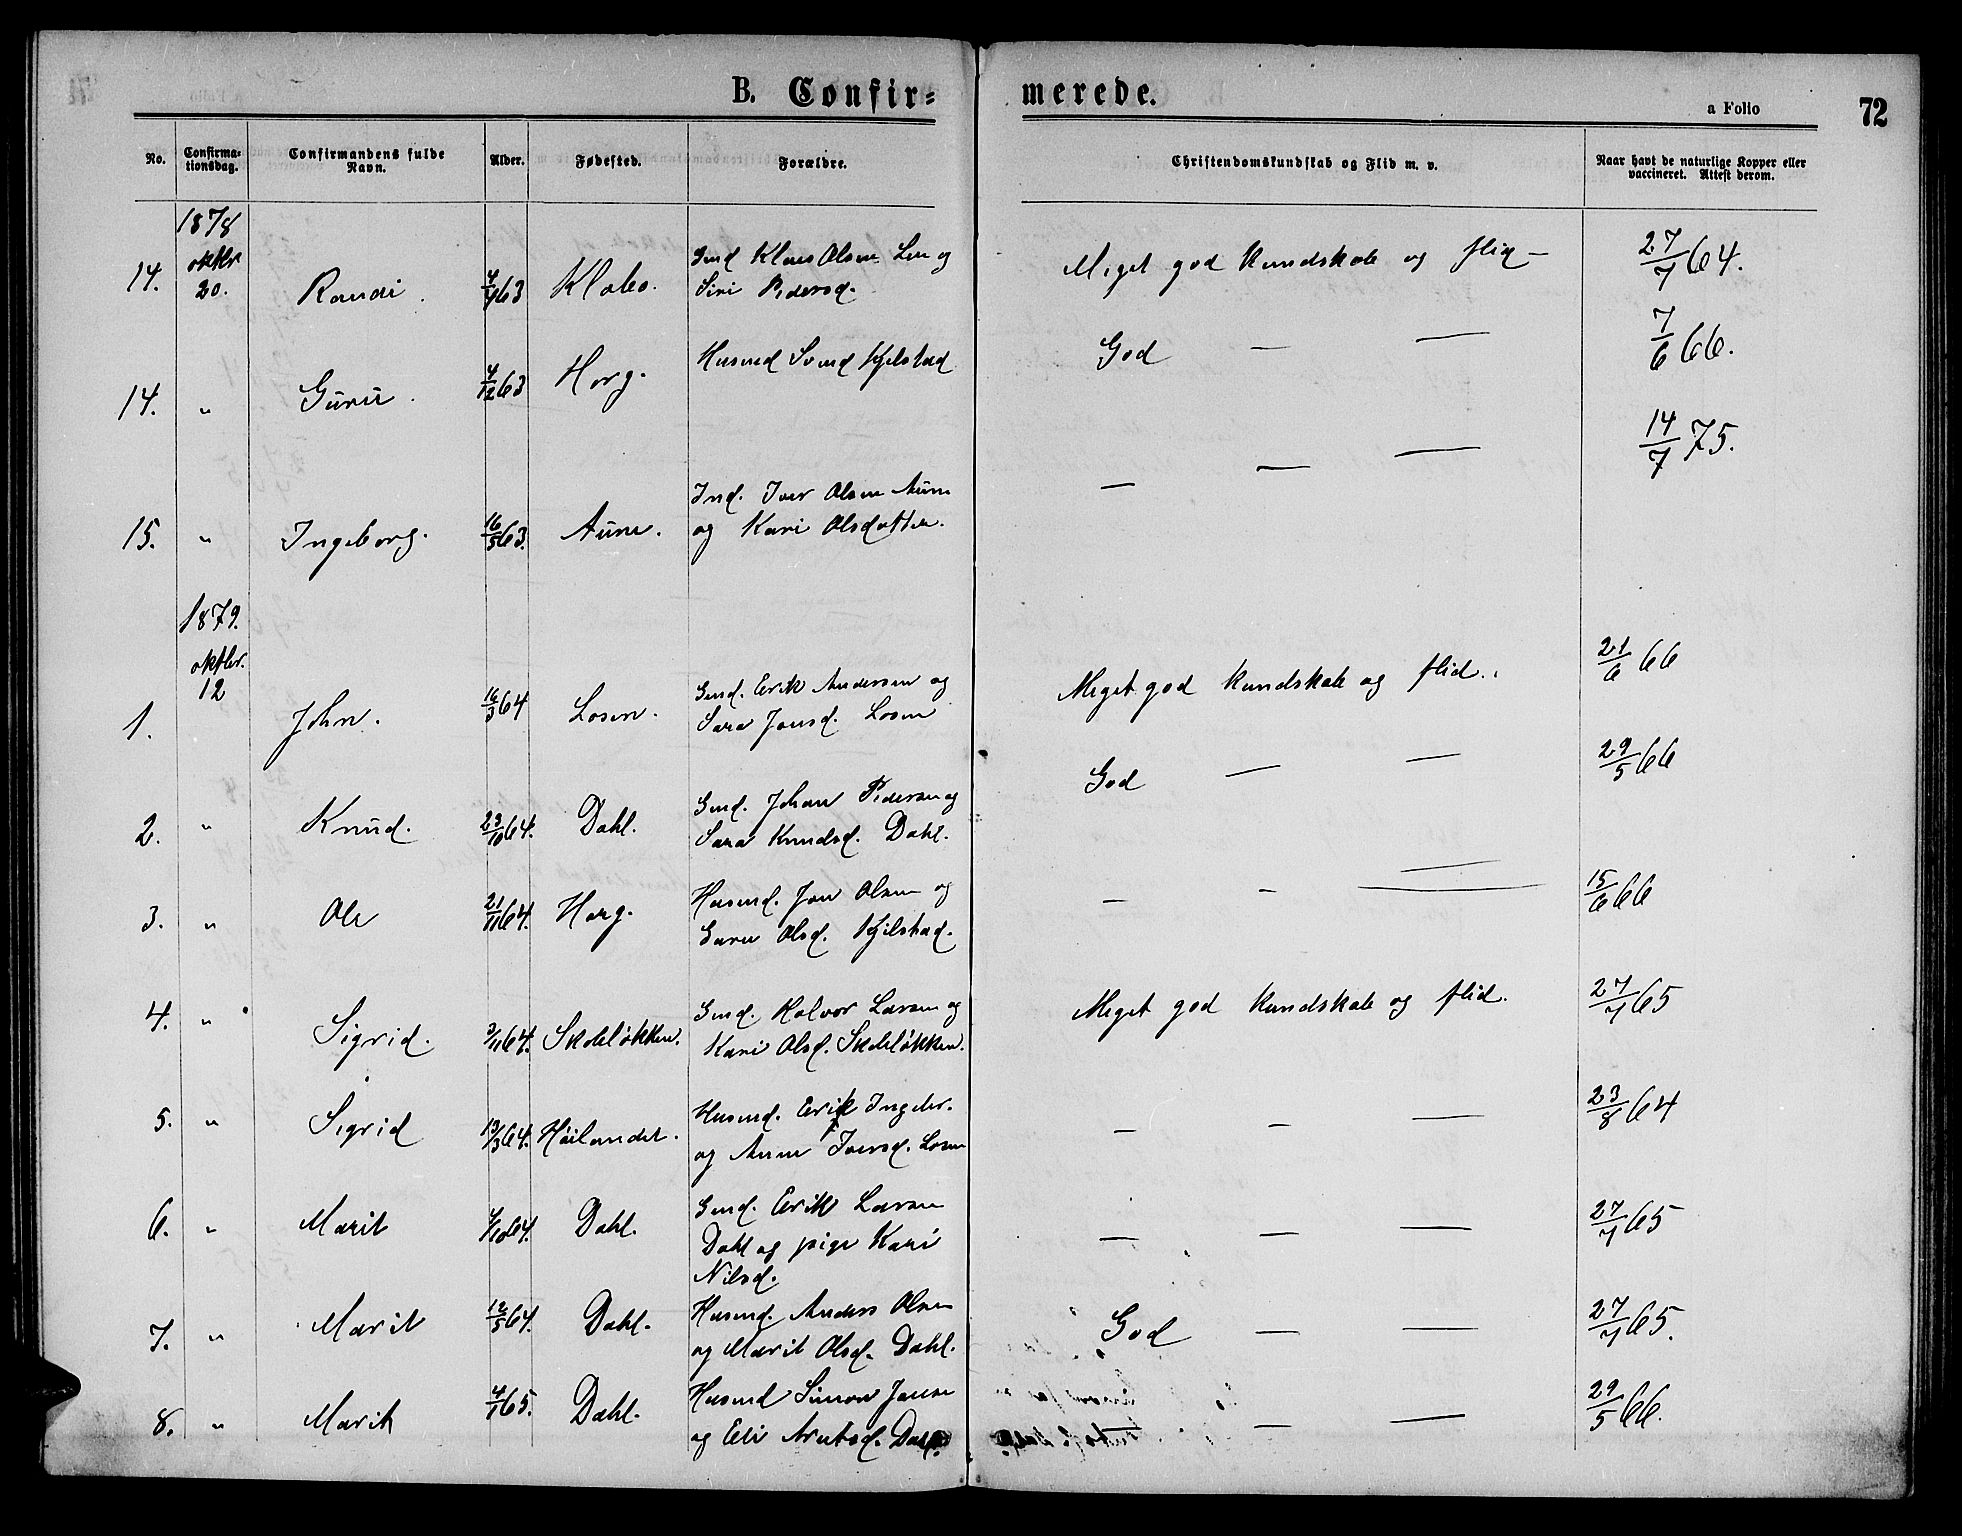 B. Confir=
merede.
a Folio
72
No.
Confirma=
tionsdag.
Confirmandens fulde
Navn.
Alder.
Fødested.
Forældre.
Christendomskundskab og Flid m. v.
Naar havt de naturlige Kopper eller
vaccineret. Attest derom.
1878
oktbr
20.
14. Randi 4/4 63 Klæbo. Gmd Klaus Olsen Len og
Siri Pedersd. Meget god kundskab og flid — 27/7 64.
14. " Guru 4/12 63 Horg. Husmd Svend Kjelstad God — — 7/6 66.
15. " Ingeborg. 16/5 63. Aune. Ind. Iver Olsen Aune
og Kari Olsdatter. — — — 14/7 75.
1879.
oktbr.
12
1. John. 16/3 64 Losen. Gmd. Erik Andersen og
Sara Jonsd. Losen Meget god kundskab og flid. 21/6 66
2. " Knud. 23/10 64. Dahl. Gmd. Johan Pedersen og
Sara Knudsd. Dahl. God — — 29/5 66
3. " Ole 21/11 64. Horg. Husmd. Jon Olsen og
Guru Olsd. Kjelstad. — — — 15/6 66
4. " Sigrid. 3/11 64. Skoleløkken. Gmd. Halvor Larsen og
Kari Olsd. Skoleløkken. Meget god kundskab og flid. 27/7 65
5. " Sigrid 13/3 64. Høilandet. Husmd. Erik Ingebr.
og Anne Iversd. Losen — — — 23/8 64
6. " Marit 4/10 64. Dahl. Gmd. Erik Larsen
Dahl og pige Kari
Nilsd. — — — 27/7 65
7. " Marit 12/5 64. Dahl. Husmd. Anders Olsen
og Marit Olsd. Dahl. God — — 27/7 65.
8. " Marit 4/1 65. Dahl. Husmd Simon Jonsen
og Eli Arntsd. Dahl. — — — 29/5 66.